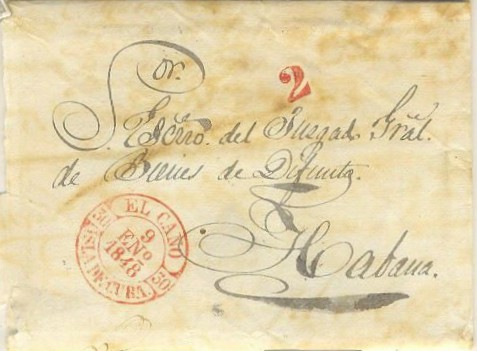 Sor.
2
Escño. del Juzgado Gral.
de Bienes de Difuntos.
Habana.
EL CANO
9
ENº
1848
ISLA DE CUBA.
30
30